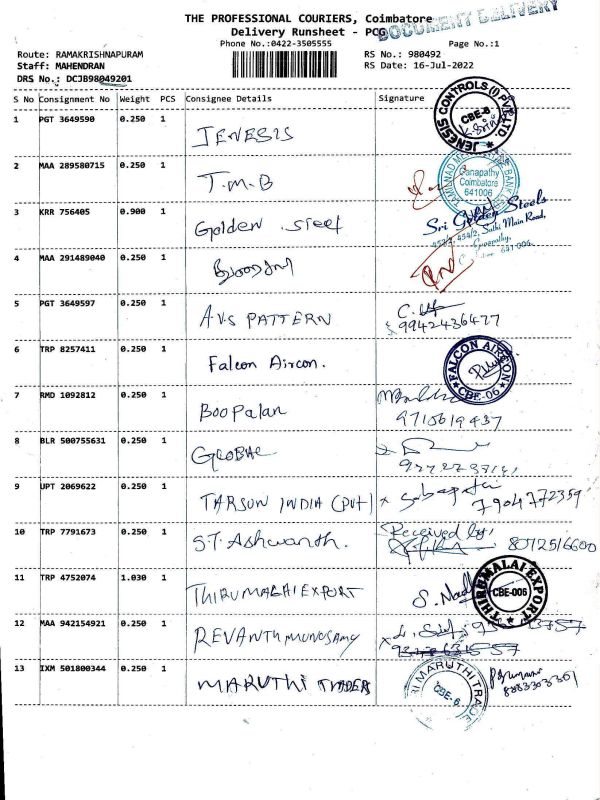 THE PROFESSIONAL COURIERS, Coimbatore
DOCUMENT DELIVERY
Delivery Runsheet - PCG
Phone No.:0422-3505555
Page No.:1
Route: RAMAKRISHNAPURAM
RS No.: 980492
Staff: MAHENDRAN
RS Date: 16-Jul-2022
DRS No.: DCJB98049201
S No Consignment No Weight PCS Consignee Details Signature
1 PGT 3649590 0.250 1 JENESIS
JENESIS CONTROLS (I) PVT LTD CBE-6
2 MAA 289580715 0.250 1 T.M.B
Ganapathy
Coimbatore
641006
3 KRR 756405 0.900 1 Golden steel
Sri Golden Steels
Sathi Main Road,
Ganapathy,
641 006
4 MAA 291489040 0.250 1
5 PGT 3649597 0.250 1 A.V.S PATTERN
9942436477
6 TRP 8257411 0.250 1 Falcon Aircon.
FALCON AIRCON CBE-06
7 RMD 1092812 0.250 1 Boopalan
9715619437
8 BLR 500755631 0.250 1 GLOBAL
9 UPT 2069622 0.250 1 TARSON INDIA (PVT)
7904772359
10 TRP 7791673 0.250 1 S.T. Ashwanth.
Received by,
8072516600
11 TRP 4752074 1.030 1 THIRUMALAI EXPORT
THIRUMALAI EXPORT CBE-006
12 MAA 942154921 0.250 1 REVANTH MUNUSAMY
13 IXM 501800344 0.250 1 MARUTHI TRADERS
MARUTHI TRADE
CBE-6